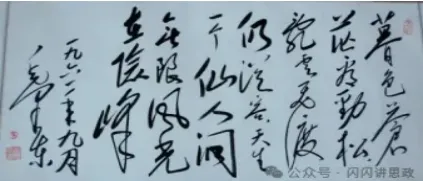 暮色蒼
茫看勁松
亂雲飛渡
仍從容天生
一个仙人洞
無限風光
在險峰
一九六一年九月
毛澤東
公众号·闪闪讲思政